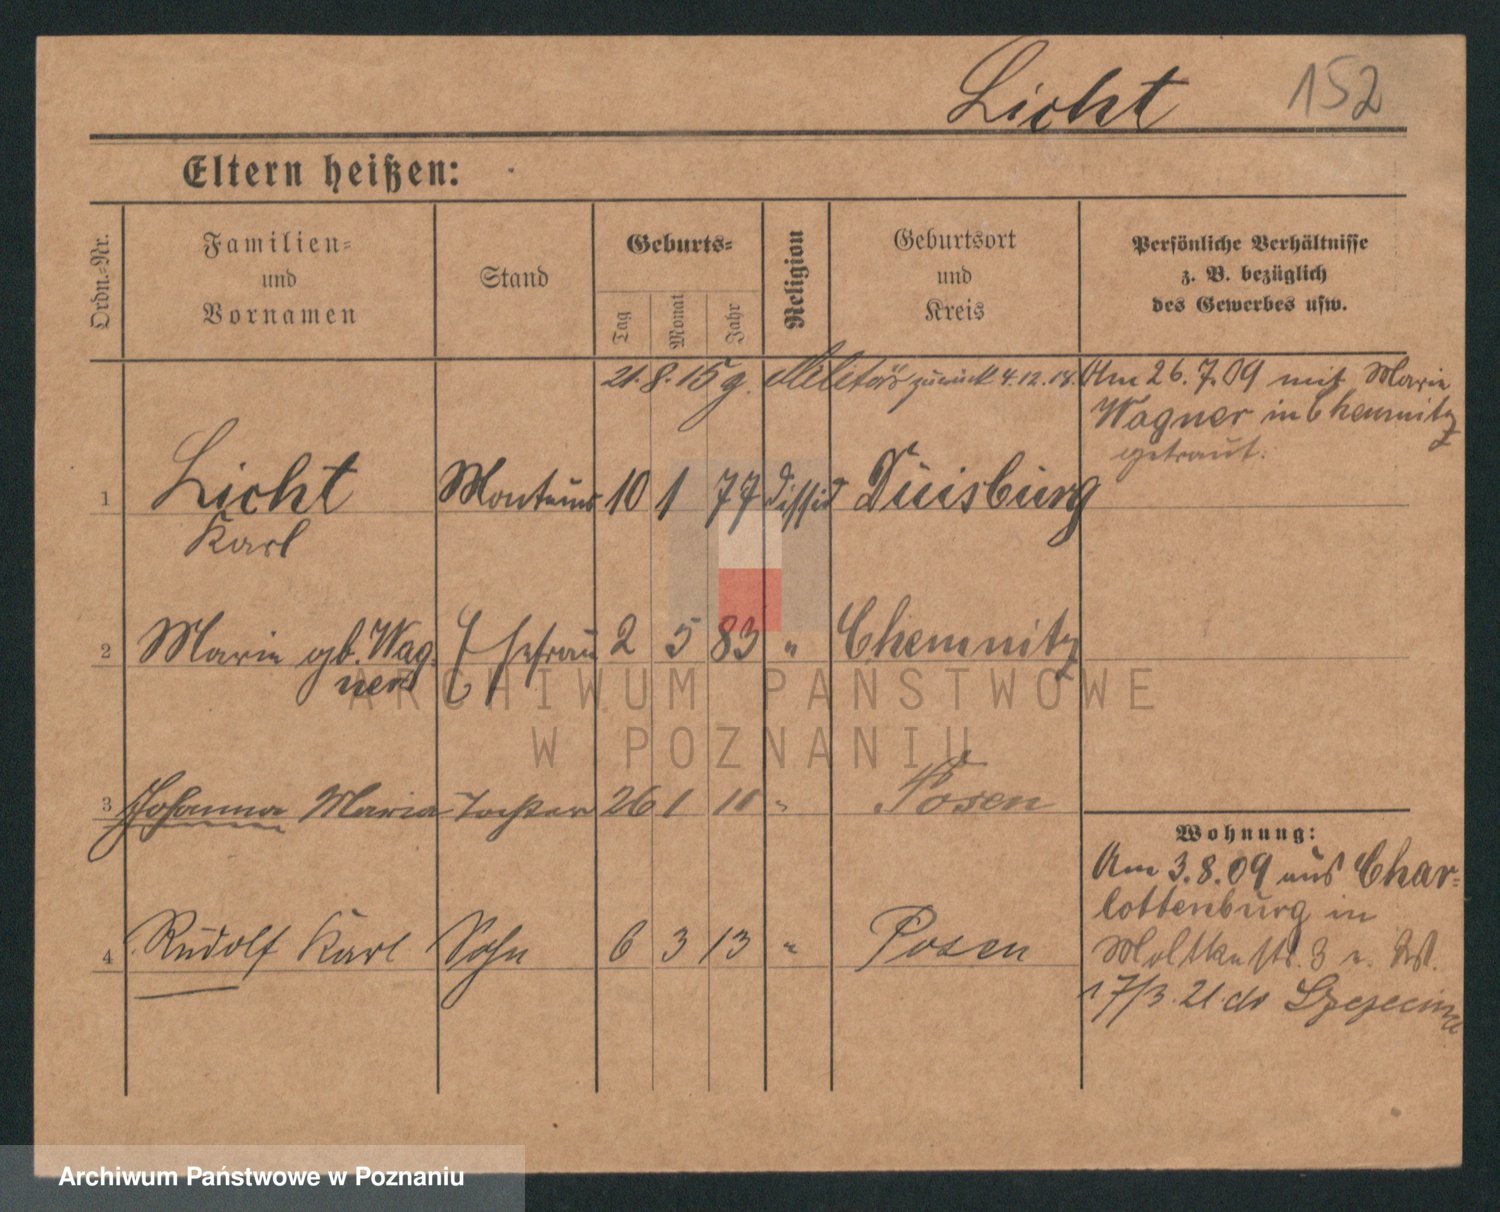 Licht 152
Eltern heißen:
Ordn.-Nr.
Familien-
und
Vornamen
Stand
Geburts-
Tag
Monat
Jahr
Religion
Geburtsort
und
Kreis
Persönliche Verhältnisse
z. B. bezüglich
des Gewerbes usw.
21.8.15 z. Militär zurück 4.12.18.
Am 26.7.09 mit Marie
Wagner in Chemnitz
getraut.
1 Licht Monteur 10 1 77 dissid Duisburg
Karl
2 Marie gb. Wag- Ehefrau 2 5 83 " Chemnitz
ner
3 Johanna Maria Tochter 26 1 10 " Posen
4 Rudolf Karl Sohn 6 3 13 " Posen
Wohnung:
Am 3.8.09 aus Char-
lottenburg in
Moltkestr. 3
17/3.21 do
ARCHIWUM PAŃSTWOWE
W POZNANIU
Archiwum Państwowe w Poznaniu